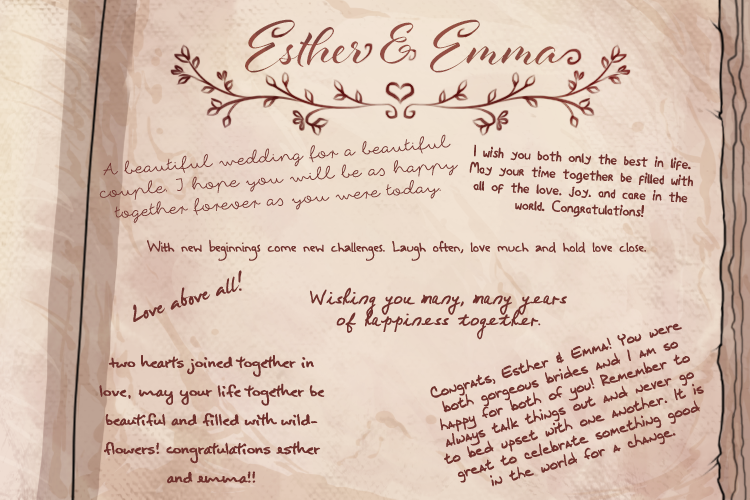 Esther & Emma
A beautiful wedding for a beautiful
couple. I hope you will be as happy
together forever as you were today.
I wish you both only the best in life.
May your time together be filled with
all of the love, joy, and care in the
world. Congratulations!
With new beginnings come new challenges. Laugh often, love much and hold love close.
Love above all!
Wishing you many, many years
of happiness together.
two hearts joined together in
love, may your life together be
beautiful and filled with wild-
flowers! congratulations esther
and emma!!
Congrats, Esther & Emma! You were
both gorgeous brides and I am so
happy for both of you! Remember to
always talk things out and never go
to bed upset with one another. It is
great to celebrate something good
in the world for a change.